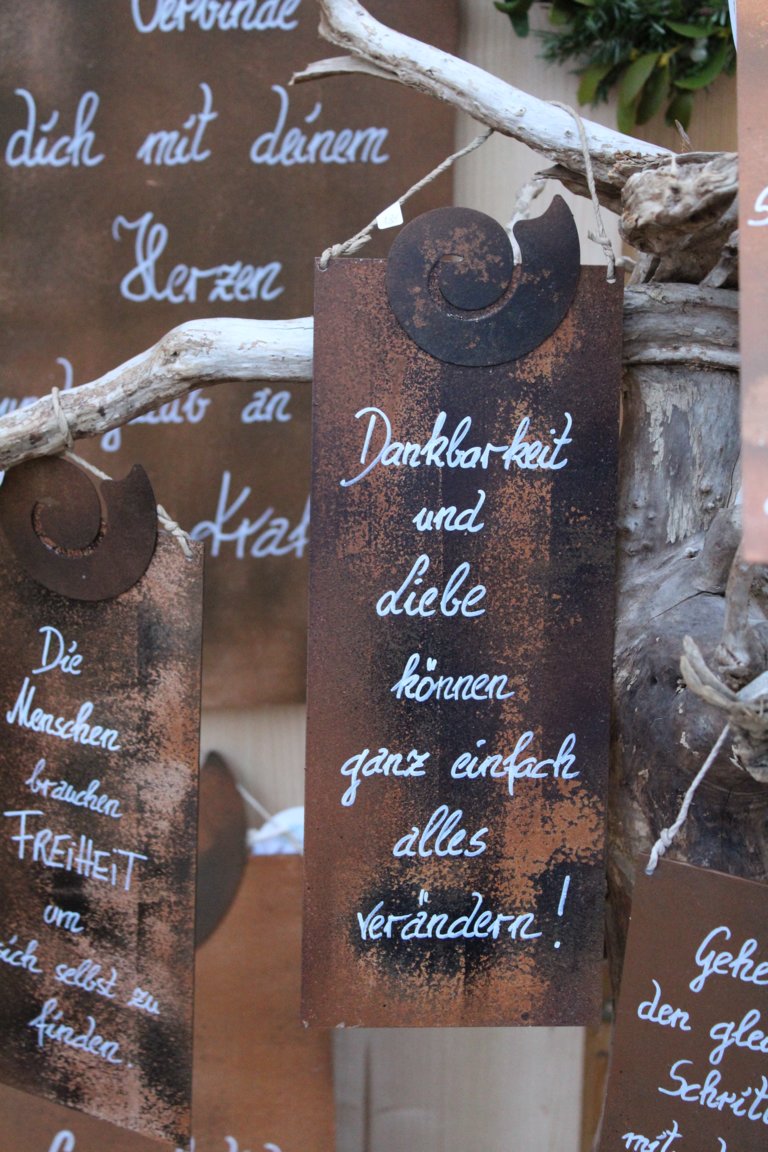 Verbinde
dich mit deinem
Herzen
und glaub an
Dankbarkeit
und
Liebe
können
ganz einfach
alles
verändern!
Die
Menschen
brauchen
FREIHEIT
um
sich selbst zu
finden.
Gehe
den
Schritt
mit